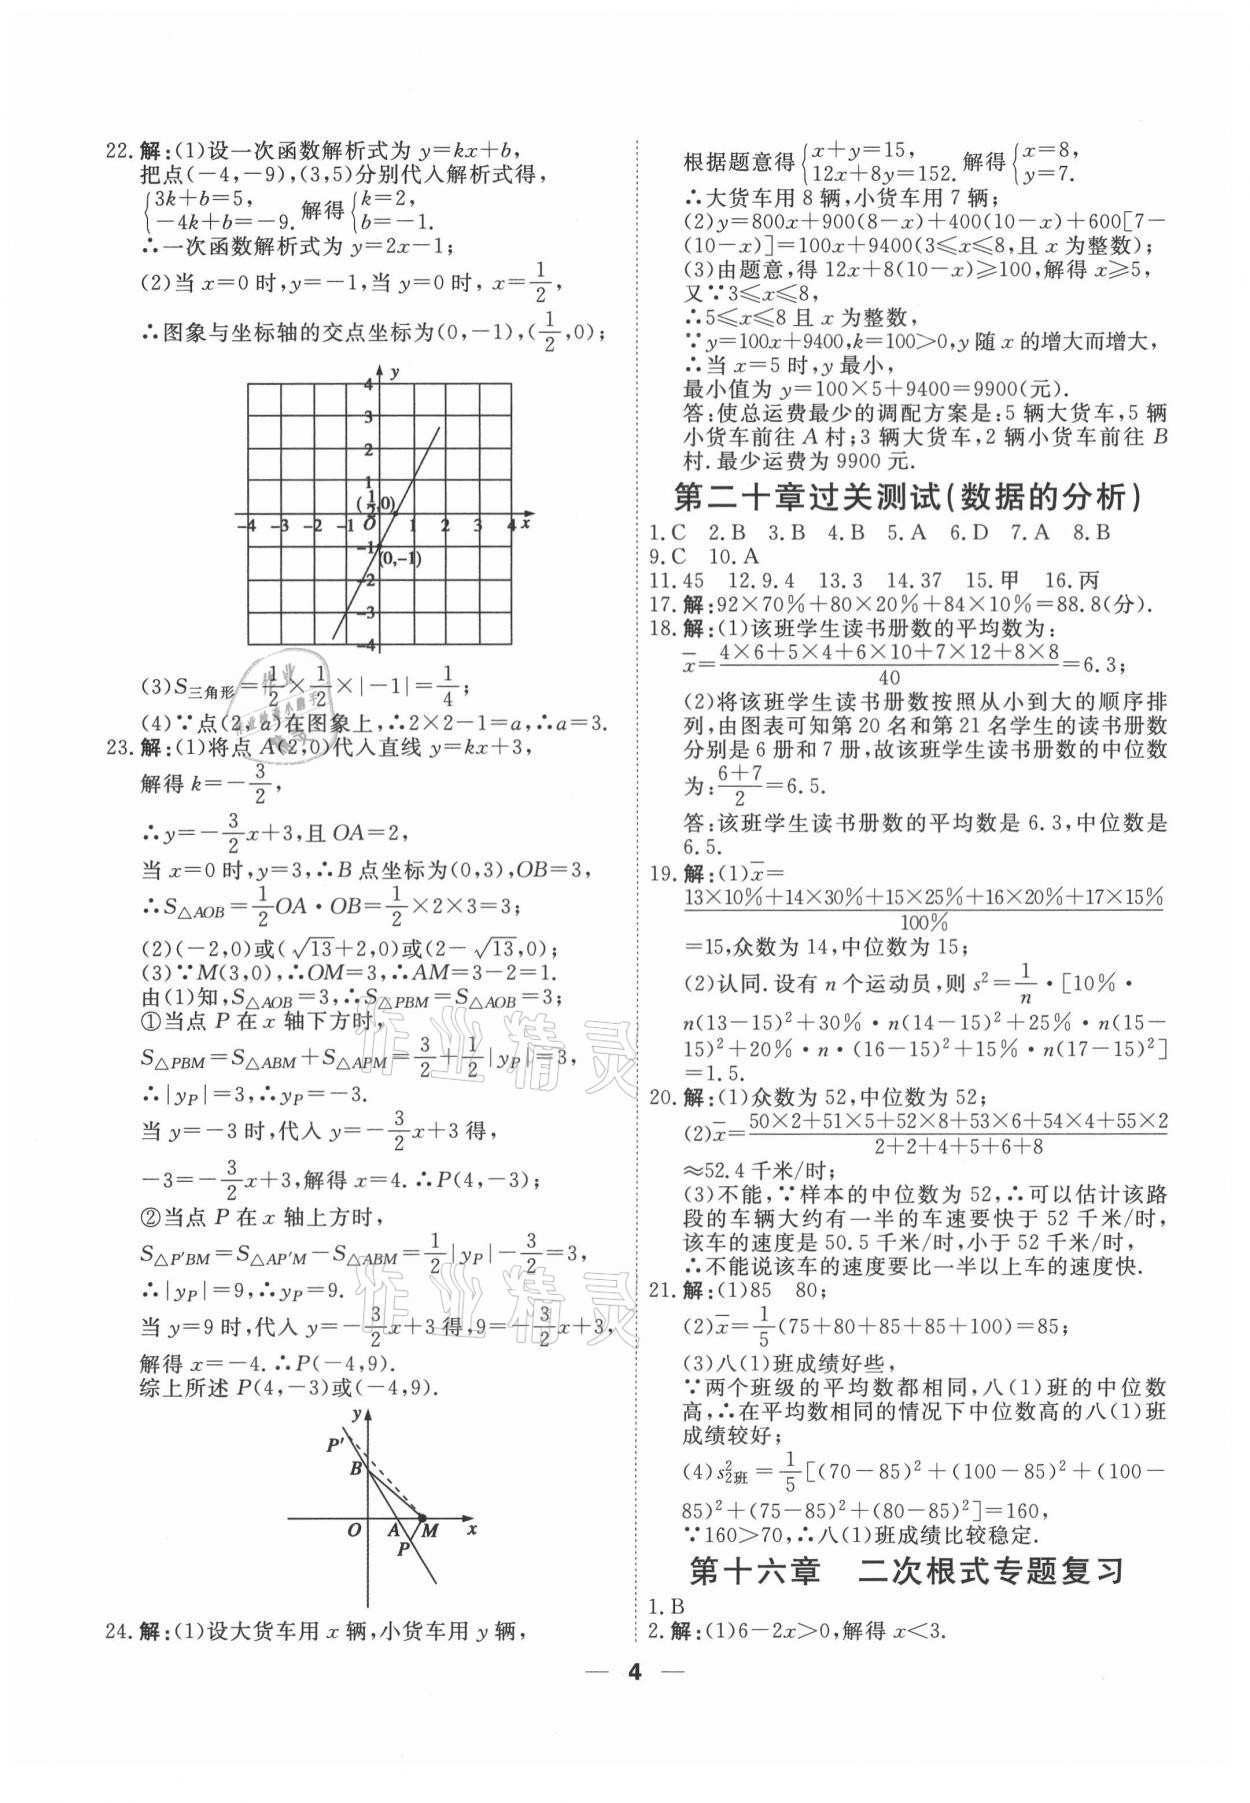 22. 解:(1)设一次函数解析式为 y=kx+b,
把点(-4,-9),(3,5)分别代入解析式得,
{3k+b=5, -4k+b=-9. 解得{k=2, b=-1.
∴一次函数解析式为 y=2x-1;
(2)当 x=0 时,y=-1,当 y=0 时, x=1/2,
∴图象与坐标轴的交点坐标为(0,-1),(1/2,0);
y
4
3
2
1
(1/2,0)
-4 -3 -2 -1 O 1 2 3 4 x
-1
(0,-1)
-2
-3
-4
(3)S三角形=1/2×1/2×|-1|=1/4;
(4)∵点(2,a)在图象上,∴2×2-1=a,∴a=3.
23. 解:(1)将点 A(2,0)代入直线 y=kx+3,
解得 k=-3/2,
∴y=-3/2x+3,且 OA=2,
当 x=0 时,y=3,∴B 点坐标为(0,3),OB=3,
∴S△AOB=1/2OA·OB=1/2×2×3=3;
(2)(-2,0)或(√13+2,0)或(2-√13,0);
(3)∵M(3,0),∴OM=3,∴AM=3-2=1.
由(1)知,S△AOB=3,∴S△PBM=S△AOB=3;
①当点 P 在 x 轴下方时,
S△PBM=S△ABM+S△APM=3/2+1/2|yP|=3,
∴|yP|=3,∴yP=-3.
当 y=-3 时,代入 y=-3/2x+3 得,
-3=-3/2x+3,解得 x=4.∴P(4,-3);
②当点 P 在 x 轴上方时,
S△P'BM=S△AP'M-S△ABM=1/2|yP|-3/2=3,
∴|yP|=9,∴yP=9.
当 y=9 时,代入 y=-3/2x+3 得,9=-3/2x+3,
解得 x=-4.∴P(-4,9).
综上所述 P(4,-3)或(-4,9).
y
P'
B
O A M x
P
24. 解:(1)设大货车用 x 辆,小货车用 y 辆,
根据题意得{x+y=15, 12x+8y=152. 解得{x=8, y=7.
∴大货车用 8 辆,小货车用 7 辆;
(2)y=800x+900(8-x)+400(10-x)+600[7-
(10-x)]=100x+9400(3≤x≤8,且 x 为整数);
(3)由题意,得 12x+8(10-x)≥100,解得 x≥5,
又∵3≤x≤8,
∴5≤x≤8 且 x 为整数,
∵y=100x+9400,k=100>0,y 随 x 的增大而增大,
∴当 x=5 时,y 最小,
最小值为 y=100×5+9400=9900(元).
答:使总运费最少的调配方案是:5 辆大货车,5 辆
小货车前往 A 村;3 辆大货车,2 辆小货车前往 B
村.最少运费为 9900 元.
第二十章过关测试(数据的分析)
1. C 2. B 3. B 4. B 5. A 6. D 7. A 8. B
9. C 10. A
11. 45 12. 9.4 13. 3 14. 37 15. 甲 16. 丙
17. 解:92×70%+80×20%+84×10%=88.8(分).
18. 解:(1)该班学生读书册数的平均数为:
x̄=(4×6+5×4+6×10+7×12+8×8)/40=6.3;
(2)将该班学生读书册数按照从小到大的顺序排
列,由图表可知第 20 名和第 21 名学生的读书册数
分别是 6 册和 7 册,故该班学生读书册数的中位数
为:(6+7)/2=6.5.
答:该班学生读书册数的平均数是 6.3,中位数是
6.5.
19. 解:(1)x̄=
(13×10%+14×30%+15×25%+16×20%+17×15%)/100%
=15,众数为 14,中位数为 15;
(2)认同.设有 n 个运动员,则 s²=1/n·[10%·
n(13-15)²+30%·n(14-15)²+25%·n(15-
15)²+20%·n·(16-15)²+15%·n(17-15)²]
=1.5.
20. 解:(1)众数为 52,中位数为 52;
(2)x̄=(50×2+51×5+52×8+53×6+54×4+55×2)/(2+2+4+5+6+8)
≈52.4 千米/时;
(3)不能,∵样本的中位数为 52,∴可以估计该路
段的车辆大约有一半的车速要快于 52 千米/时,
该车的速度是 50.5 千米/时,小于 52 千米/时,
∴不能说该车的速度要比一半以上车的速度快.
21. 解:(1)85 80;
(2)x̄=1/5(75+80+85+85+100)=85;
(3)八(1)班成绩好些,
∵两个班级的平均数都相同,八(1)班的中位数
高,∴在平均数相同的情况下中位数高的八(1)班
成绩较好;
(4)s²2班=1/5[(70-85)²+(100-85)²+(100-
85)²+(75-85)²+(80-85)²]=160,
∵160>70,∴八(1)班成绩比较稳定.
第十六章 二次根式专题复习
1. B
2. 解:(1)6-2x>0,解得 x<3.
— 4 —
作业精灵
作业精灵